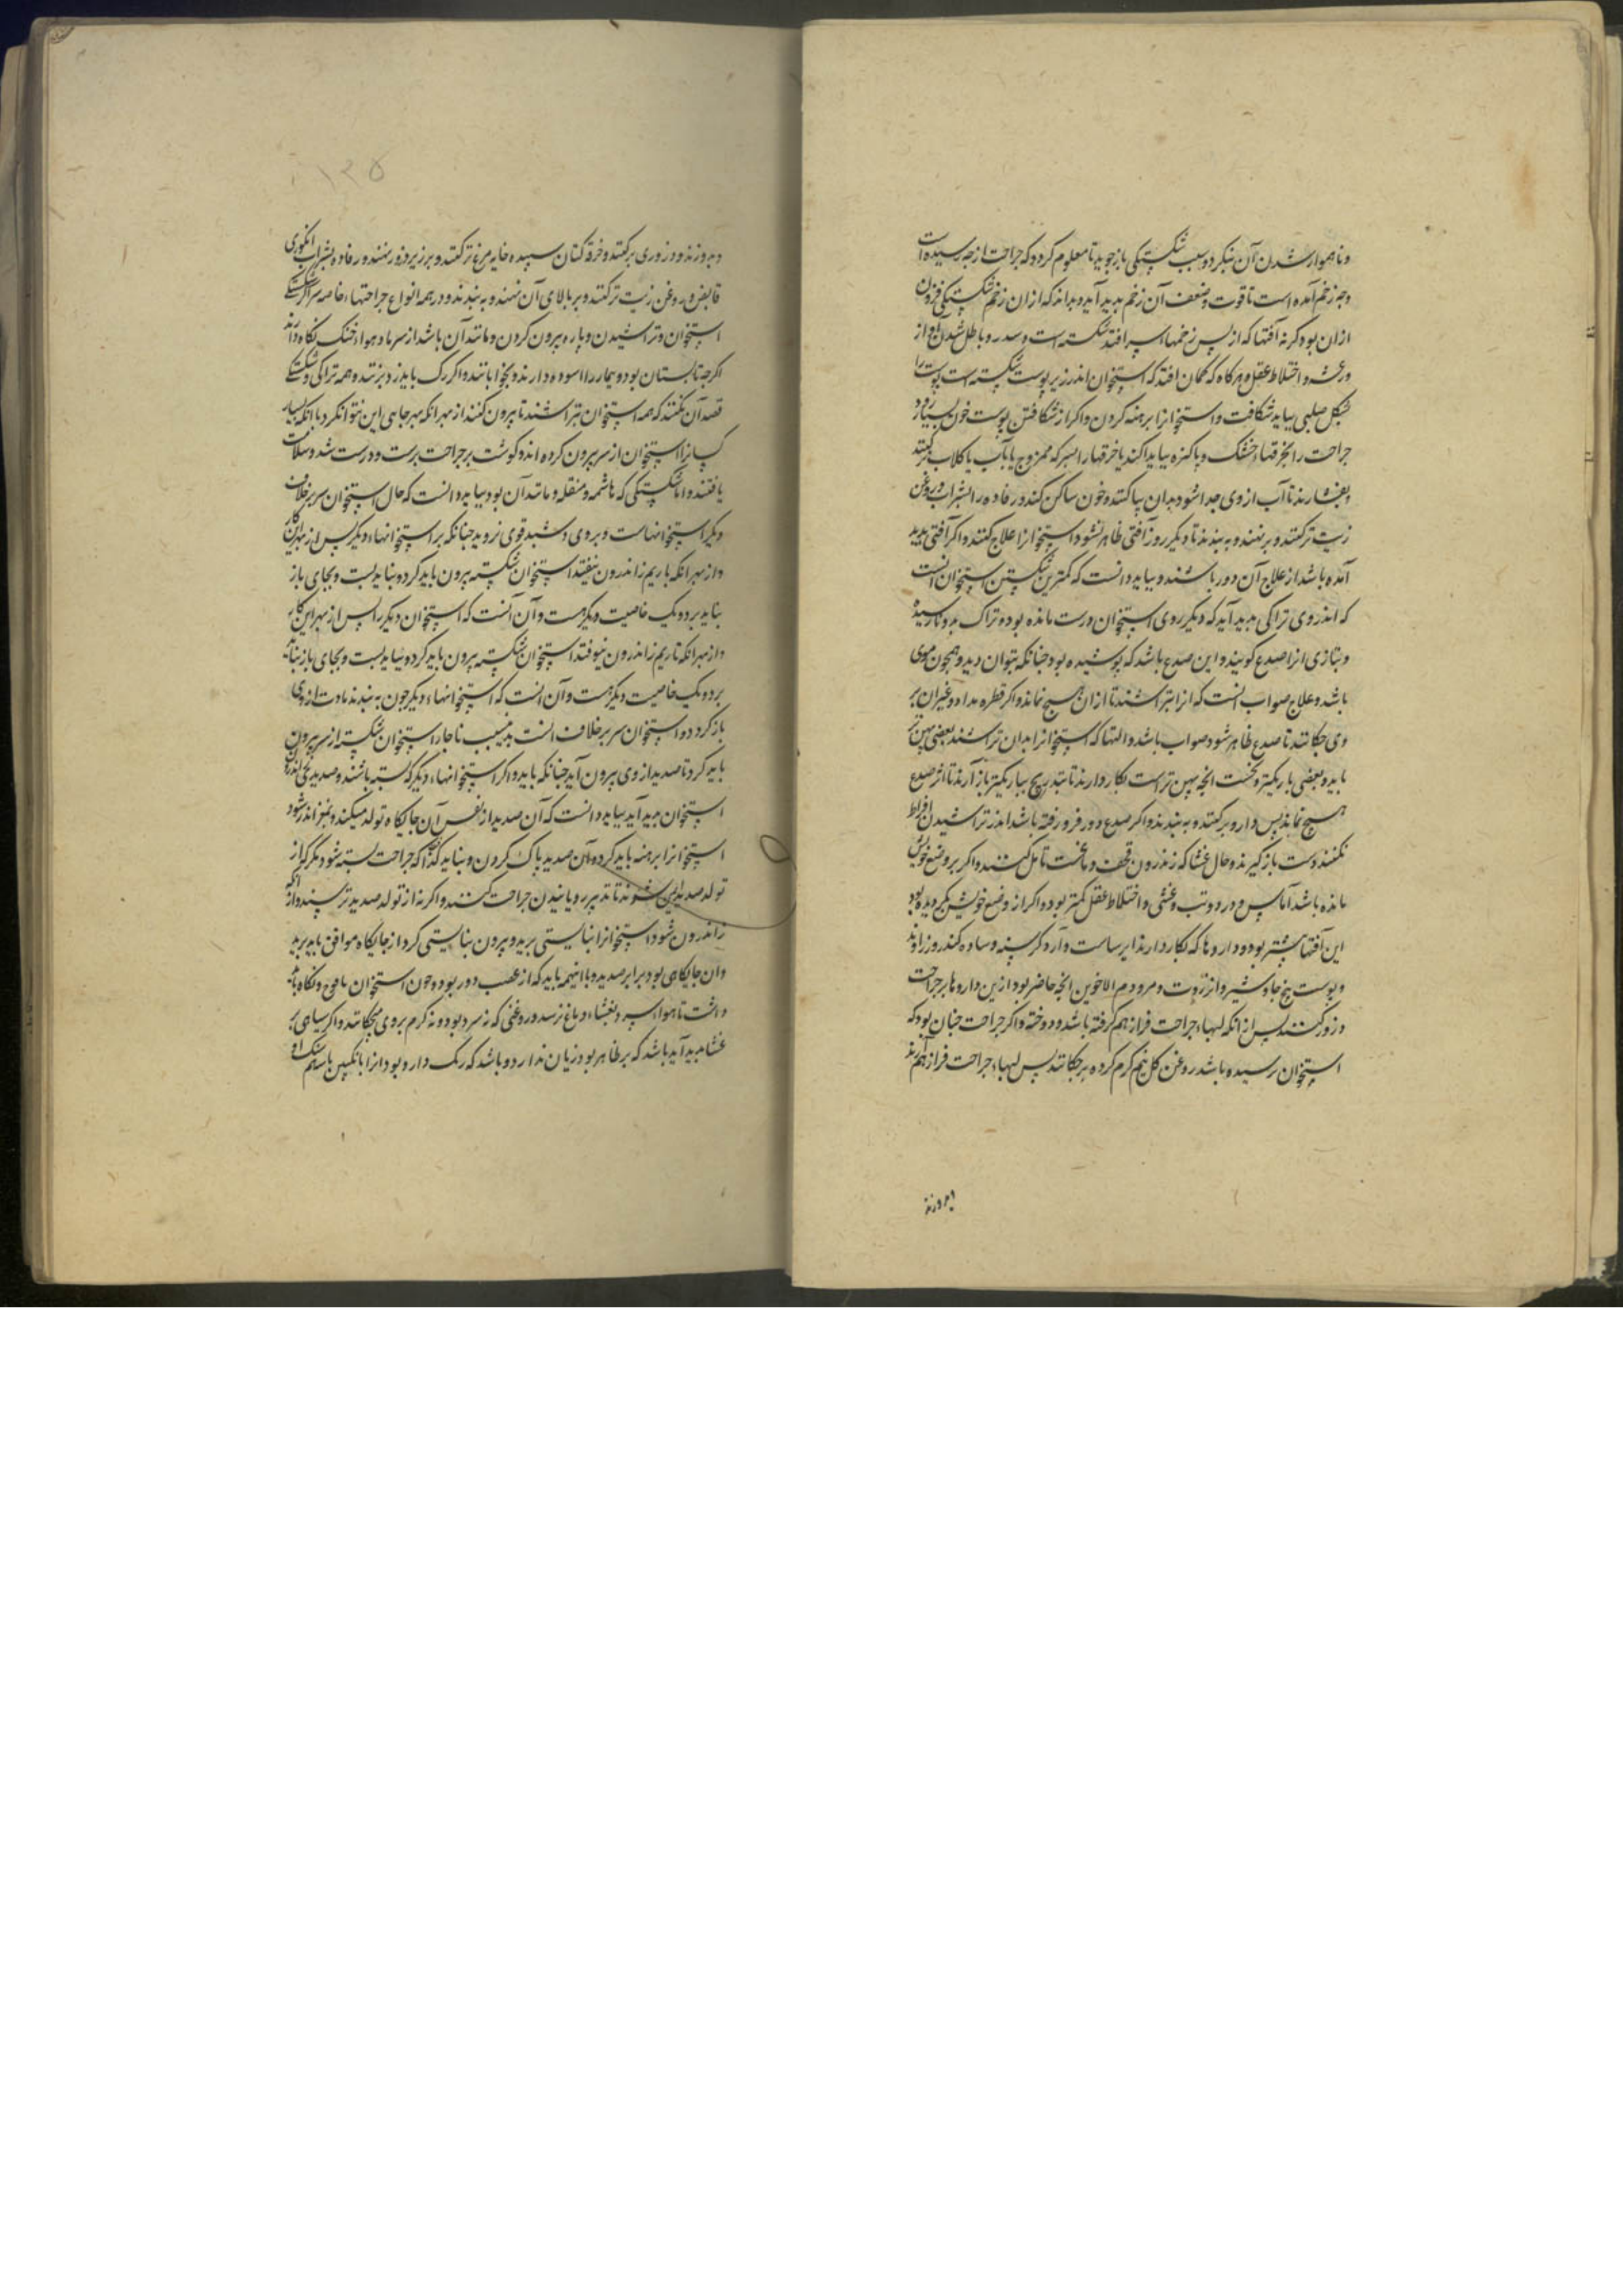 وناهموار شدن آن بنگرد وسبب شکستگی باز جوید تا معلوم کردد که جراحت از چه رسیده است
وچه زخم آمده است تا قوت وضعف آن زخم بدید آید وبداند که ازان زخم شکستگی فزون
ازان بود وکرنه آفتها که از پس زخمها سر افتد شکسته است وسدر وباطل شدن آواز
ورعشه واختلاط عقل وهرکاه که کمان افتد که استخوان اندر زیر پوست شکسته است پوست را
بشکل صلیبی بباید شکافت واستخوانرا برهنه کردن واکر از شکافتن پوست خون بسیار رود
جراحت را بخرقهاء خشک وپاکیزه بباید اکند یا خرقها را بسرکه ممزوج یا بآب یا کلاب تر کنند
وبفشارند تا آب ازوی جدا شود بدان بیاکنند وخون ساکن کند ورفاده را بشراب وروغن
زیت تر کنند وبرنهند وبه بندند تا دیکر روز آفتی ظاهر نشود استخوانرا علاج کنند واکر آفتی بدید
آمده باشد از علاج آن دور باشند وبباید دانست که کمترین شکستن استخوان آنست
که اندر وی تراکی بدید آید که دیکر روی استخوان درست مانده بود وتراک بدو نارسیده
وبتازی انرا صدع کویند واین صدع باشد که پوشیده بود چنانکه نتوان دید وهمچون موی
باشد وعلاج صواب آنست که انرا بتراشند تا ازان هیچ نماند واکر قطره مداد وغیر آن بر
وی چکانند تا صدع ظاهر شود صواب باشد والتها که استخوانرا بدان تراشند بعضی پهن تر
باید وبعضی باریکتر ونخست انچه پهن تر است بکار دارند تا بتدریج بباریکتر باز آرند تا اثر صدع
هیچ نماند پس دارو برکنند وبه بندند واکر صدع دور فرو رفته باشد اندر تراشیدن افراط
نکنند دست باز کیرند وحال غشا که زندرون قحف ودماغست تامل کنند واکر بر وضع خویش
مانده باشد آماس ودرد وتب وغشی واختلاط عقل کمتر بود واکر از وضع خویش بکردیده بود
این آفتها بیشتر بود وداروها که بکار دارند ایرساست وآرد کرسنه وساده کندر وزراوند
وپوست بیخ جاوشیر وانزروت ومر ودم الاخوین انچه حاضر بود ازین داروها بر جراحت
درور کنند پس از انکه لبهاء جراحت فراز هم کرفته باشد ودوخته واکر جراحت چنان بود که
استخوان رسیده باشد روغن کل نیم کرم کرده برچکانند پس لبهاء جراحت فراز هم آرند
وبدوزند
۱۲۵
وبدوزند ودزوری برکنند وخرقه کتان بسپیده خایه مرغ تر کنند وبر زبر درور نهند ورفاده بشراب انکوری
قابض وروغن زیت تر کنند وبر بالای آن نهند وبه بندند ودر همه انواع جراحتها خاصه سر اکر شکستگی
استخوان وتراشیدن وپاره بیرون کردن ومانند آن باشد از سرما وهواء خنک نکاه دارند
اکرچه تابستان بود وبیمار را اسوده دارند وبخوابانند واکر رک باید زد بزنند وهمه تراکی وشکستگی
قصد آن نکنند که همه استخوان بتراشند تا بیرون کنند از بهر انکه بهر جایی این نتوانکرد با انکه بسیار
کسانرا استخوان از سر بیرون کرده اند وکوشت بر جراحت برست ودرست شد وسلامت
یافتند واما شکستگی که هاشمه ومنقله ومانند آن بود بباید دانست که حال استخوان سر بر خلاف
دیکر استخوانهاست وبر وی دشبد قوی نروید چنانکه بر استخوانهاء دیکر پس از بهر این کار
واز بهر انکه تا ریم زاندرون نیفتد استخوان شکسته بیرون باید کرد ونباید بست وبجای باز
نباید برد ویک خاصیت دیکر هست وآن آنست که استخوان دیکر را پس از بهر این کار
واز بهر انکه تا ریم زاندرون نیوفتد استخوان شکسته بیرون باید کرد ونباید بست وبجای باز نباید
برد ویک خاصیت دیکر هست وآن آنست که استخوانهاء دیکر چون به بندند مادت ازوی
باز کردد واستخوان سر بر خلاف آنست بدین سبب ناچار استخوان شکسته از سر بیرون
باید کرد تا صدید ازوی بیرون آید چنانکه باید واکر استخوانهاء دیکر که بسته باشند وصدید بجایی اندر زیر
استخوان بدید آید بباید دانست که آن صدید از نفس آن جایکاه تولد میکند وبمغز اندر شود
استخوانرا برهنه باید کرد وآن صدید پاک کردن ونباید کذاشت که جراحت بسته شود مکر که از
تولد صدید ایمن شوند تا تدبیر رویانیدن جراحت کنند واکرنه از تولد صدید ترسند واز انکه
زاندرون شود استخوانرا نبایستی برید وبیرون نبایستی کرد از جایکاه موافق باید برید
وان جایکاهی بود برابر صدید وبا اینهمه باید که از عصب دور بود وچون استخوان یافوخ ونکاه باید
داشت تا هواء سرد بغشاء دماغ نرسد وروغنی که نه سرد بود ونه کرم بروی میچکانند واکر سیاهی بر
غشا بدید آید باشد که بر ظاهر بود زیان ندارد وباشد که رنک دارو بود انرا بانکبین